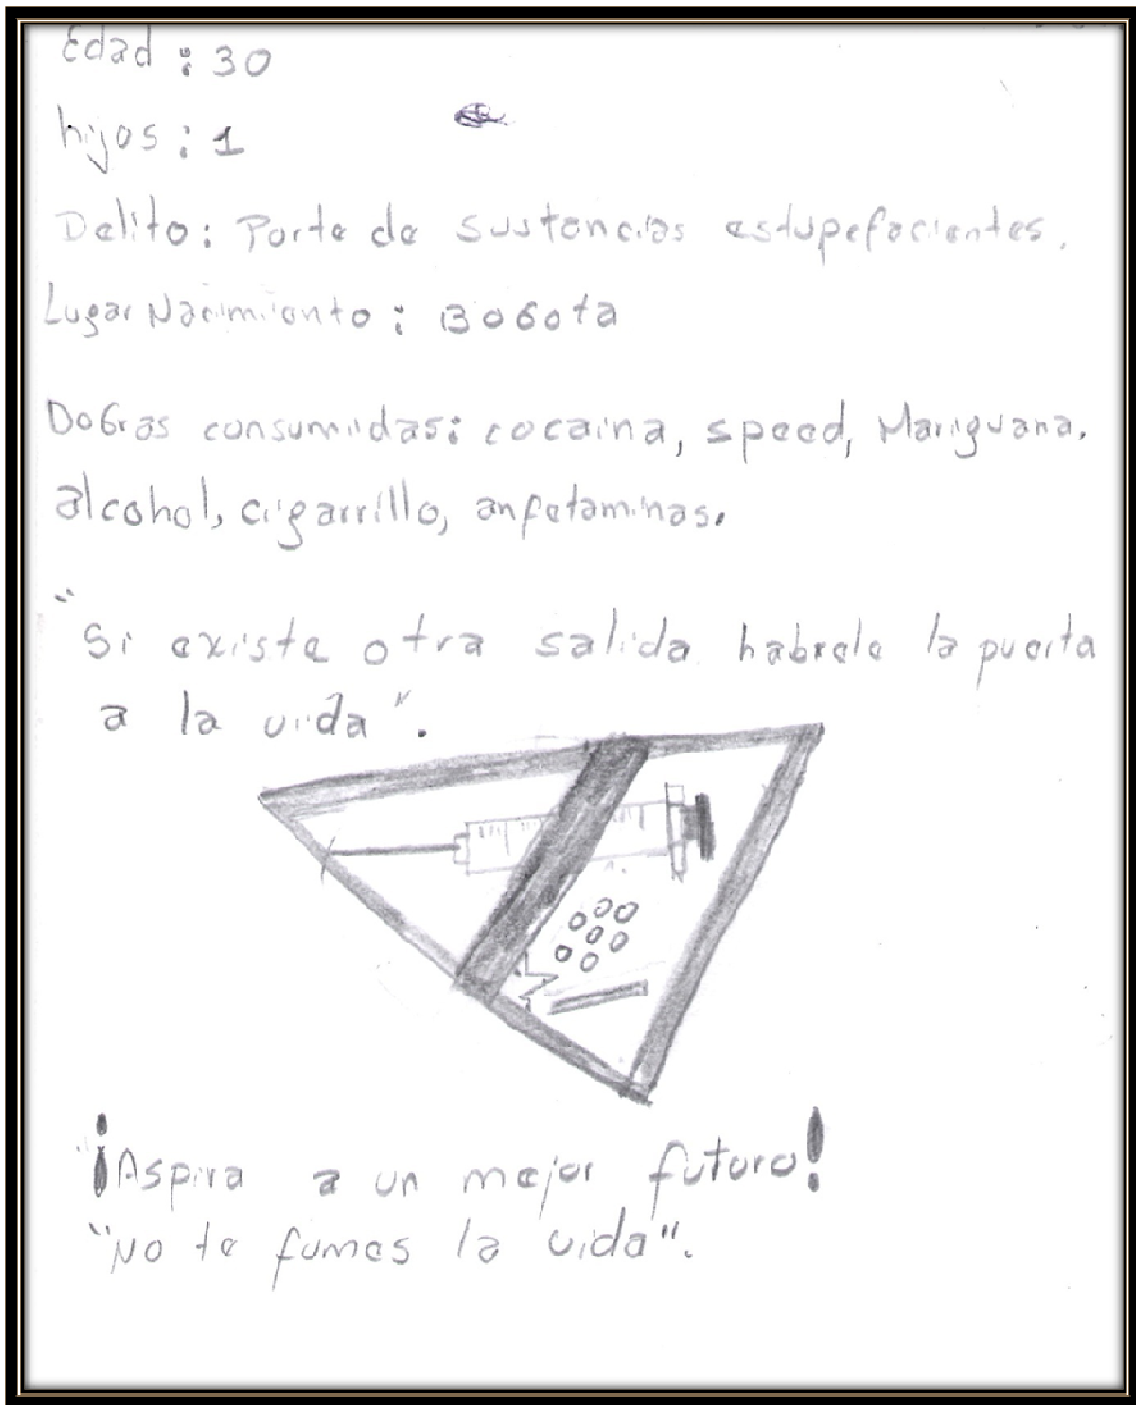 Edad : 30
hijos : 1
Delito: Porte de sustancias estupefacientes.
Lugar Nacimiento : BoGota
DoGras consumidas: cocaina, speed, Mariguana,
alcohol, cigarrillo, anfetaminas.
"Si existe otra salida habrele la puerta
a la vida".
¡Aspira a un mejor futuro!
"No te fumes la vida".